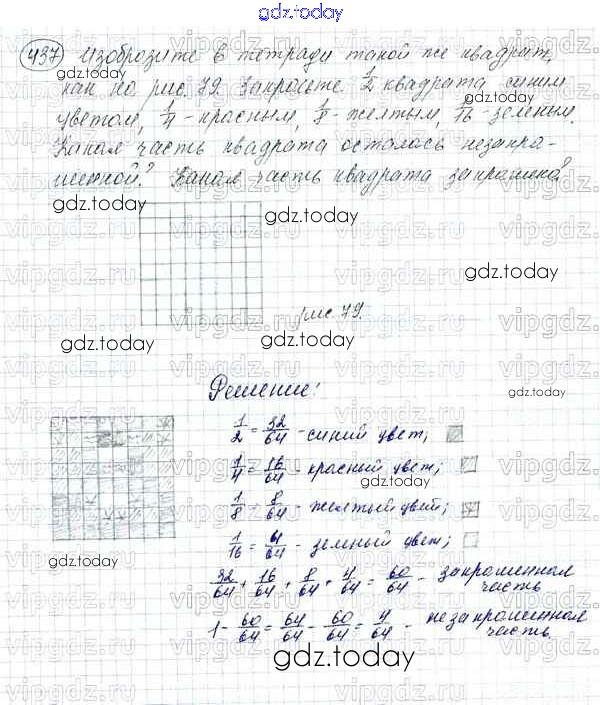 gdz.today
437 Изобразите в тетради такой же квадрат,
gdz.today
как на рис. 79. Закрасьте 1/2 квадрата синим
цветом, 1/4 - красным, 1/8 - желтым, 1/16 - зеленым.
Какая часть квадрата осталась незакра-
шенной? Какая часть квадрата закрашена?
gdz.today
gdz.today
gdz.today
рис. 79.
gdz.today
gdz.today
Решение:
gdz.today
1/2 = 32/64 - синий цвет;
1/4 = 16/64 - красный цвет;
gdz.today
1/8 = 8/64 - желтый цвет;
1/16 = 4/64 - зеленый цвет;
gdz.today
32/64 + 16/64 + 8/64 + 4/64 = 60/64 - закрашенная
часть
1 - 60/64 = 64/64 - 60/64 = 4/64 - незакрашенная
часть.
gdz.today
vipgdz.ru